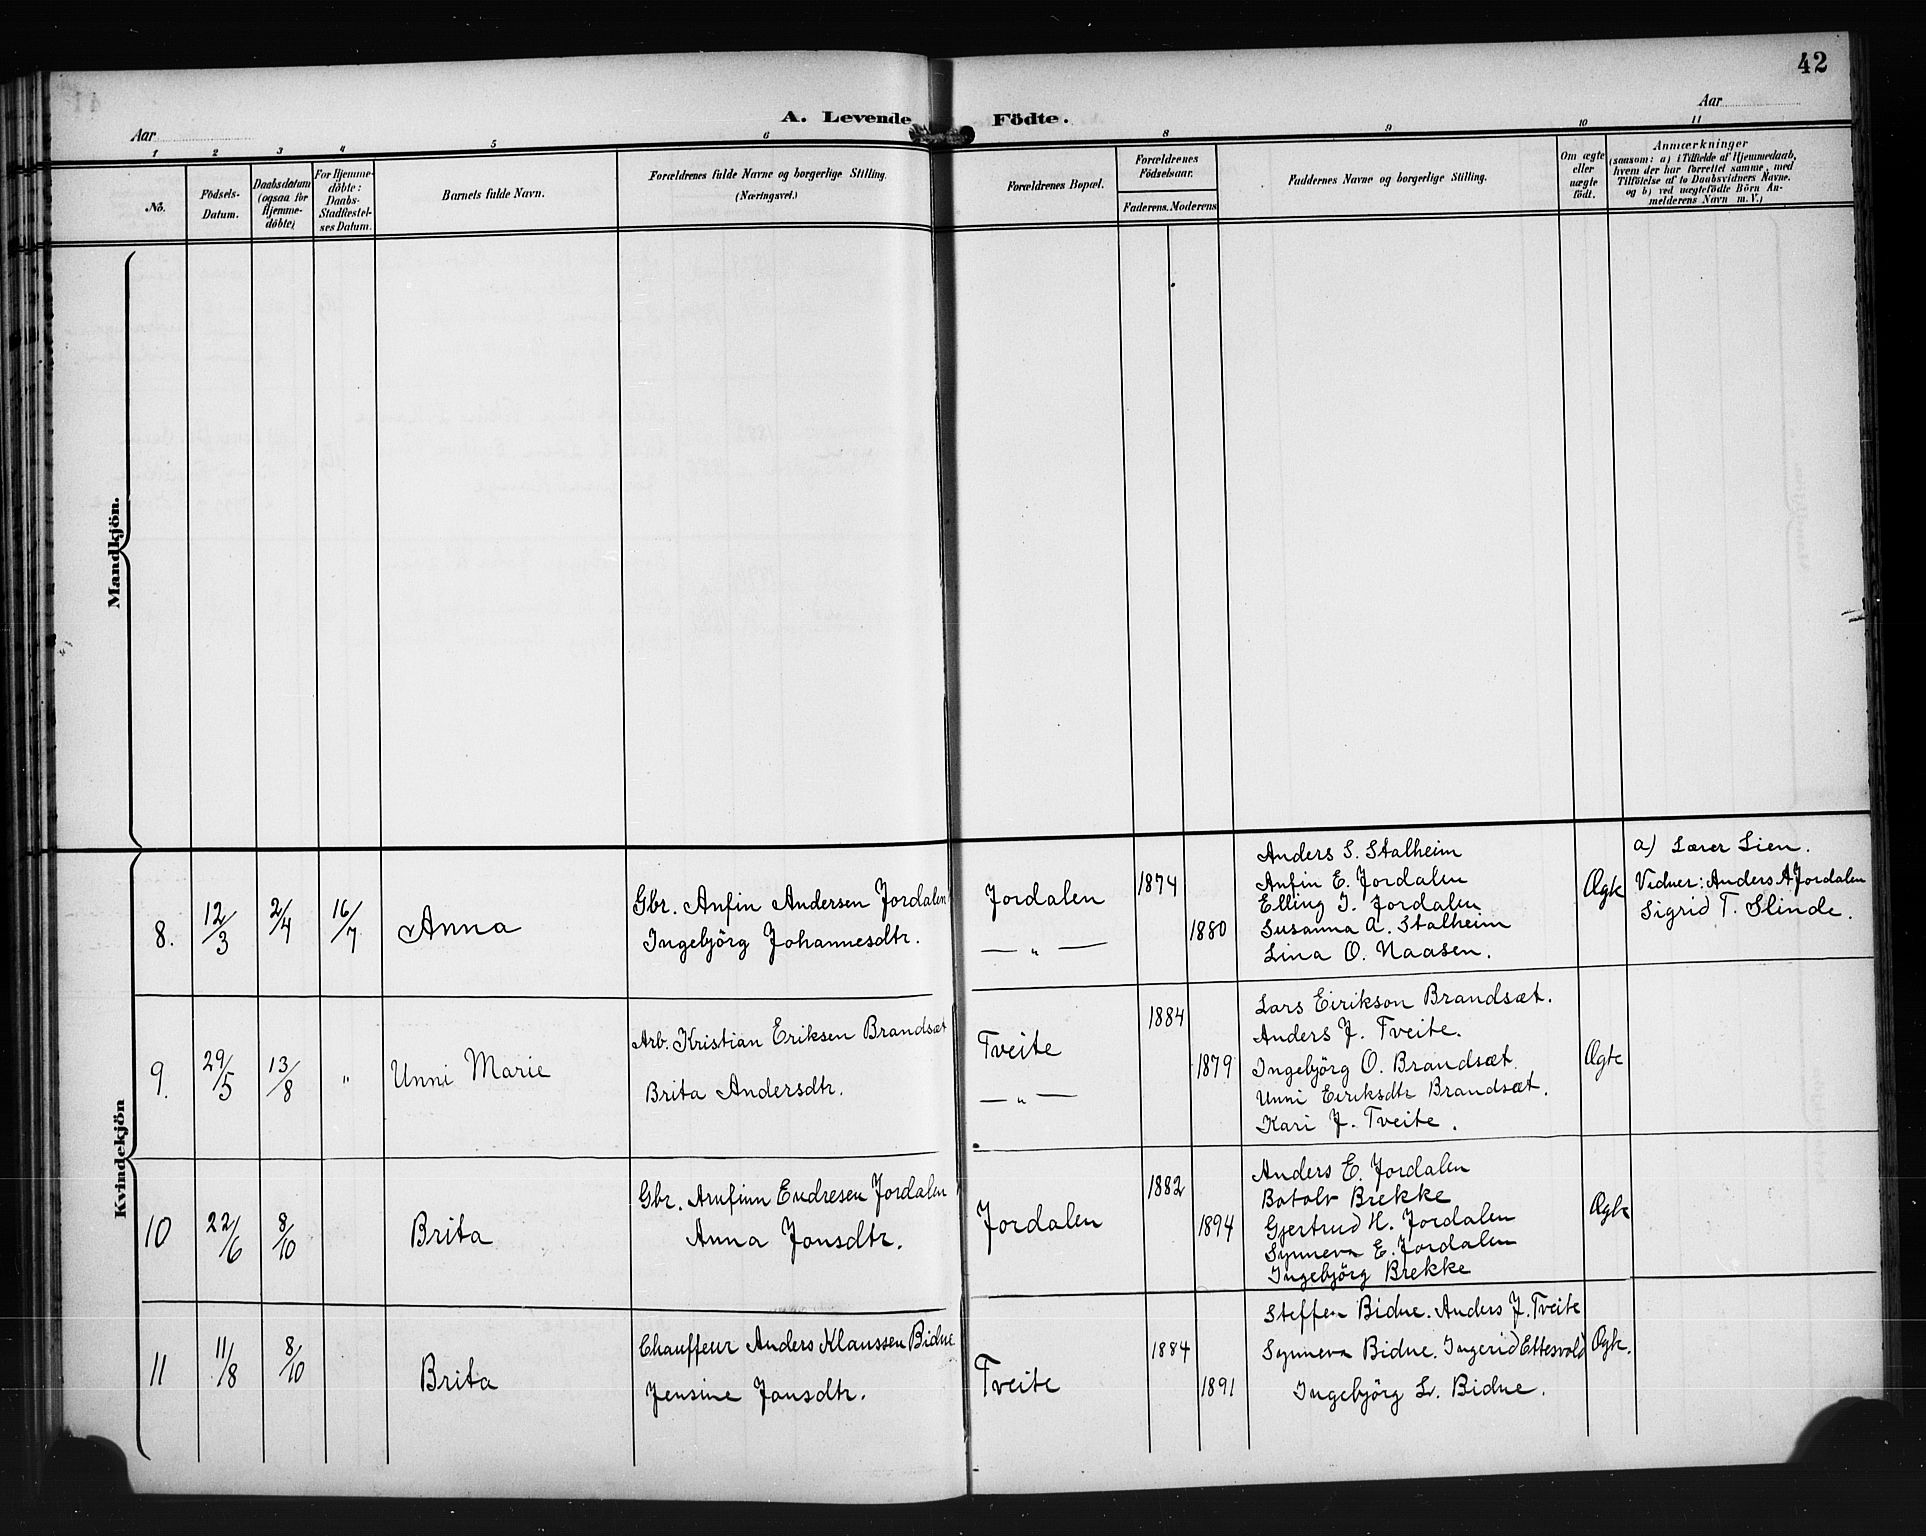 42
Aar
A. Levende Födte.
Aar
1 2 3 4 5 6 8 9 10 11
No.
Födsels-
Datum.
Daabsdatum
(ogsaa for
Hjemme-
döbte)
For Hjemme-
döbte:
Daabs-
Stadfæstel-
ses Datum.
Barnets fulde Navn.
Forældrenes fulde Navne og borgerlige Stilling.
(Næringsvei.)
Forældrenes Bopæl.
Forældrenes
Födselsaar.
Faderens. Moderens
Faddernes Navne og borgerlige Stilling.
Om ægte
eller
uægte
födt.
Anmærkninger
(saasom: a) i Tilfælde af Hjemmedaab,
hvem der har forrettet samme, med
Tilföielse af to Daabsvidners Navne.
og b) ved uægtefödte Börn An-
melderens Navn m. V.)
Mandkjön.
Kvindekjön
8. 12/3 2/4 16/7 Anna
Gbr. Anfin Andersen Jordalen
Ingebjörg Johannesdtr.
Jordalen
— " —
1874
1880
Anders S. Stalheim
Anfin E. Jordalen
Elling I. Jordalen
Susanna A. Stalheim
Lina O. Naasen.
Ægte
a) Lærer Lien.
Vidner: Anders A Jordalen
Sigrid T. Slinde.
9. 29/5 13/8 " Unni Marie
Arb. Kristian Eriksen Brandsæt
Brita Andersdtr.
Tveite
— " —
1884
1879
Lars Eirikson Brandsæt.
Anders J. Tveite.
Ingebjörg O. Brandsæt.
Unni Eiriksdtr Brandsæt.
Kari J. Tveite.
Ægte
10 22/6 8/10 Brita
Gbr. Arnfinn Endresen Jordalen
Anna Jonsdtr.
Jordalen
1882
1894
Anders E. Jordalen
Botolv Brekke
Gjertrud H. Jordalen
Synneva E. Jordalen
Ingebjörg Brekke
Ægte
11 11/8 8/10 Brita
Chauffeur Anders Klaussen Bidne
Jensine Jonsdtr.
Tveite
1884
1891
Steffen Bidne. Anders J. Tveite
Synneva Bidne. Ingerid Ettesvold
Ingebjörg L. Bidne.
Ægte.